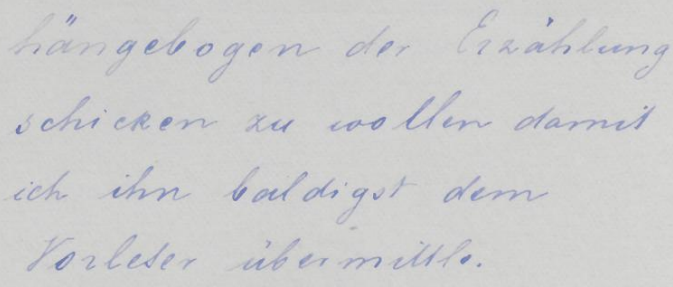 hängebogen der Erzählung
schicken zu wollen damit
ich ihn baldigst dem
Vorleser übermittle.